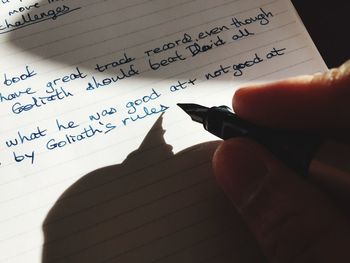 move
challenges
book
have great track record, even though
Goliath should beat David all
what he was good at + not good at
by Goliath's rules